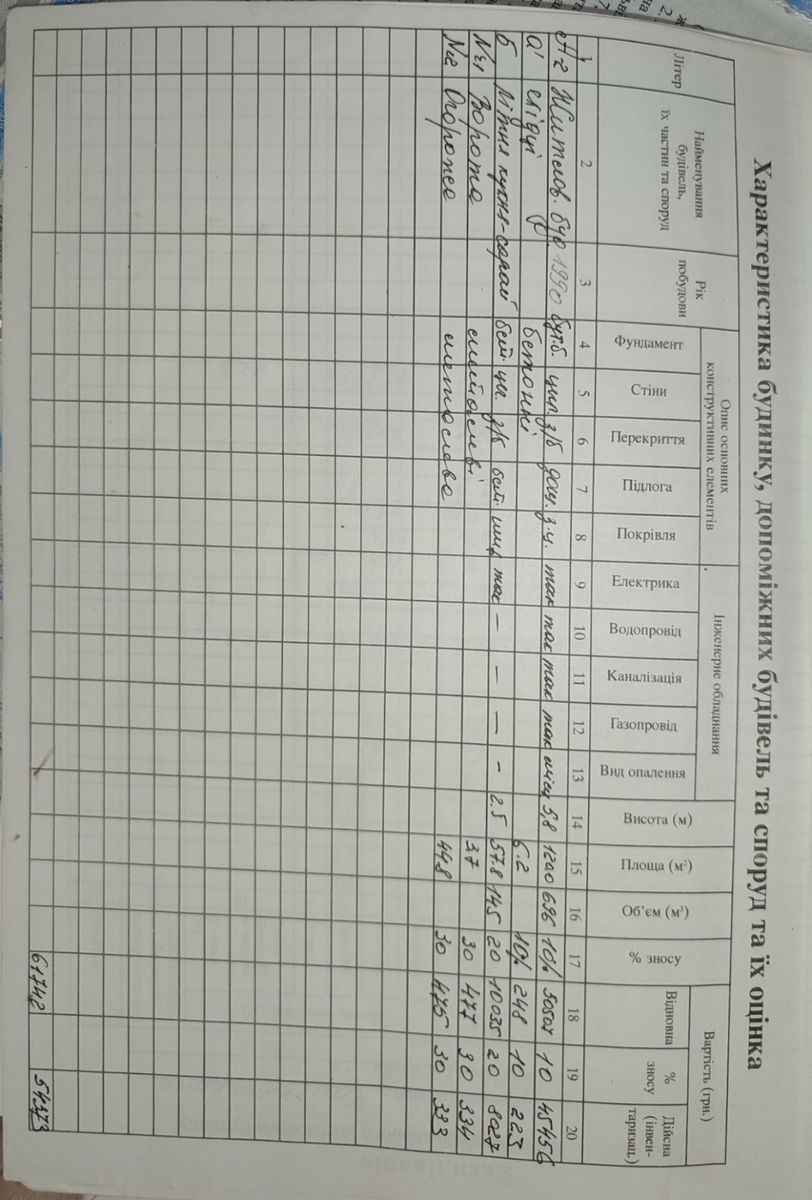 Характеристика будинку, допоміжних будівель та споруд та їх оцінка
Літер
Найменування будівель, їх частин та споруд
Рік побудови
Опис основних конструктивних елементів
Фундамент
Стіни
Перекриття
Підлога
Покрівля
Інженерне обладнання
Електрика
Водопровід
Каналізація
Газопровід
Вид опалення
Висота (м)
Площа (м²)
Об'єм (м³)
% зносу
Вартість (грн.)
Відновна
% зносу
Дійсна (інвентаризац.)
1 2 3 4 5 6 7 8 9 10 11 12 13 14 15 16 17 18 19 20
Житлов. буд 1990 бут.б. цгл. з/б дощ. так так так так 5,8 696 10% 50507 10 45456
а' східці бетонні 6.2 10% 248 10 223
Б літня кухня-сарай бет. цгл. з/б бет. шир так — — — - 2.5 57.8 145 20 10035 20 8027
№1 Ворота металеві 3.7 30 477 30 334
№2 Огорожа металева 44.8 30 475 30 333
61742 54373